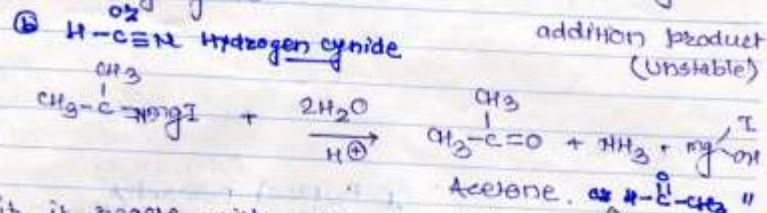 or
ⓑ H-C≡N Hydrogen cynide addition product
(Unstable)
CH3
CH3-C=NmgI + 2H2O
H⊕
CH3
CH3-C=O + NH3 + mg
I
OH
Acetone. or H-C-CH3 "
O
it it reacts